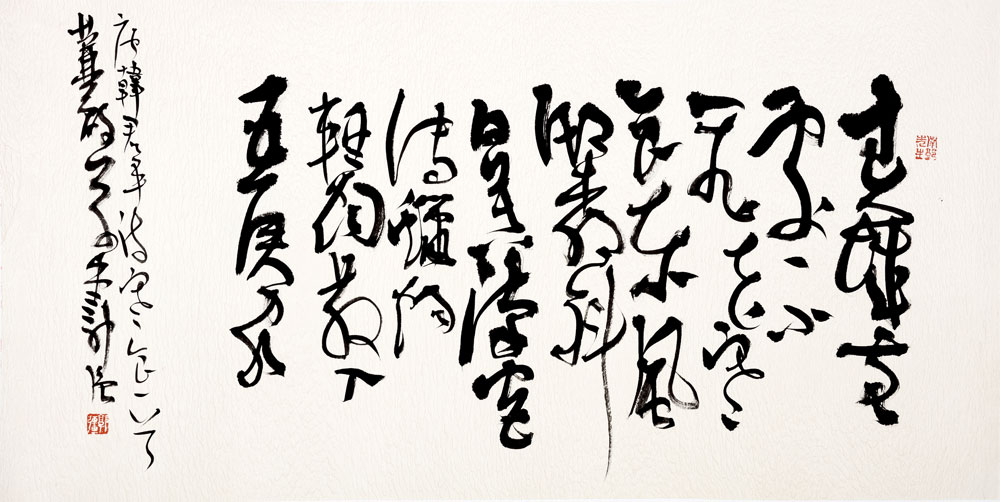 春城無
處不
飛花寒
食東風
御柳斜
日暮漢宮
傳蠟燭
輕烟散入
五侯家
唐韓君平詩寒食一首